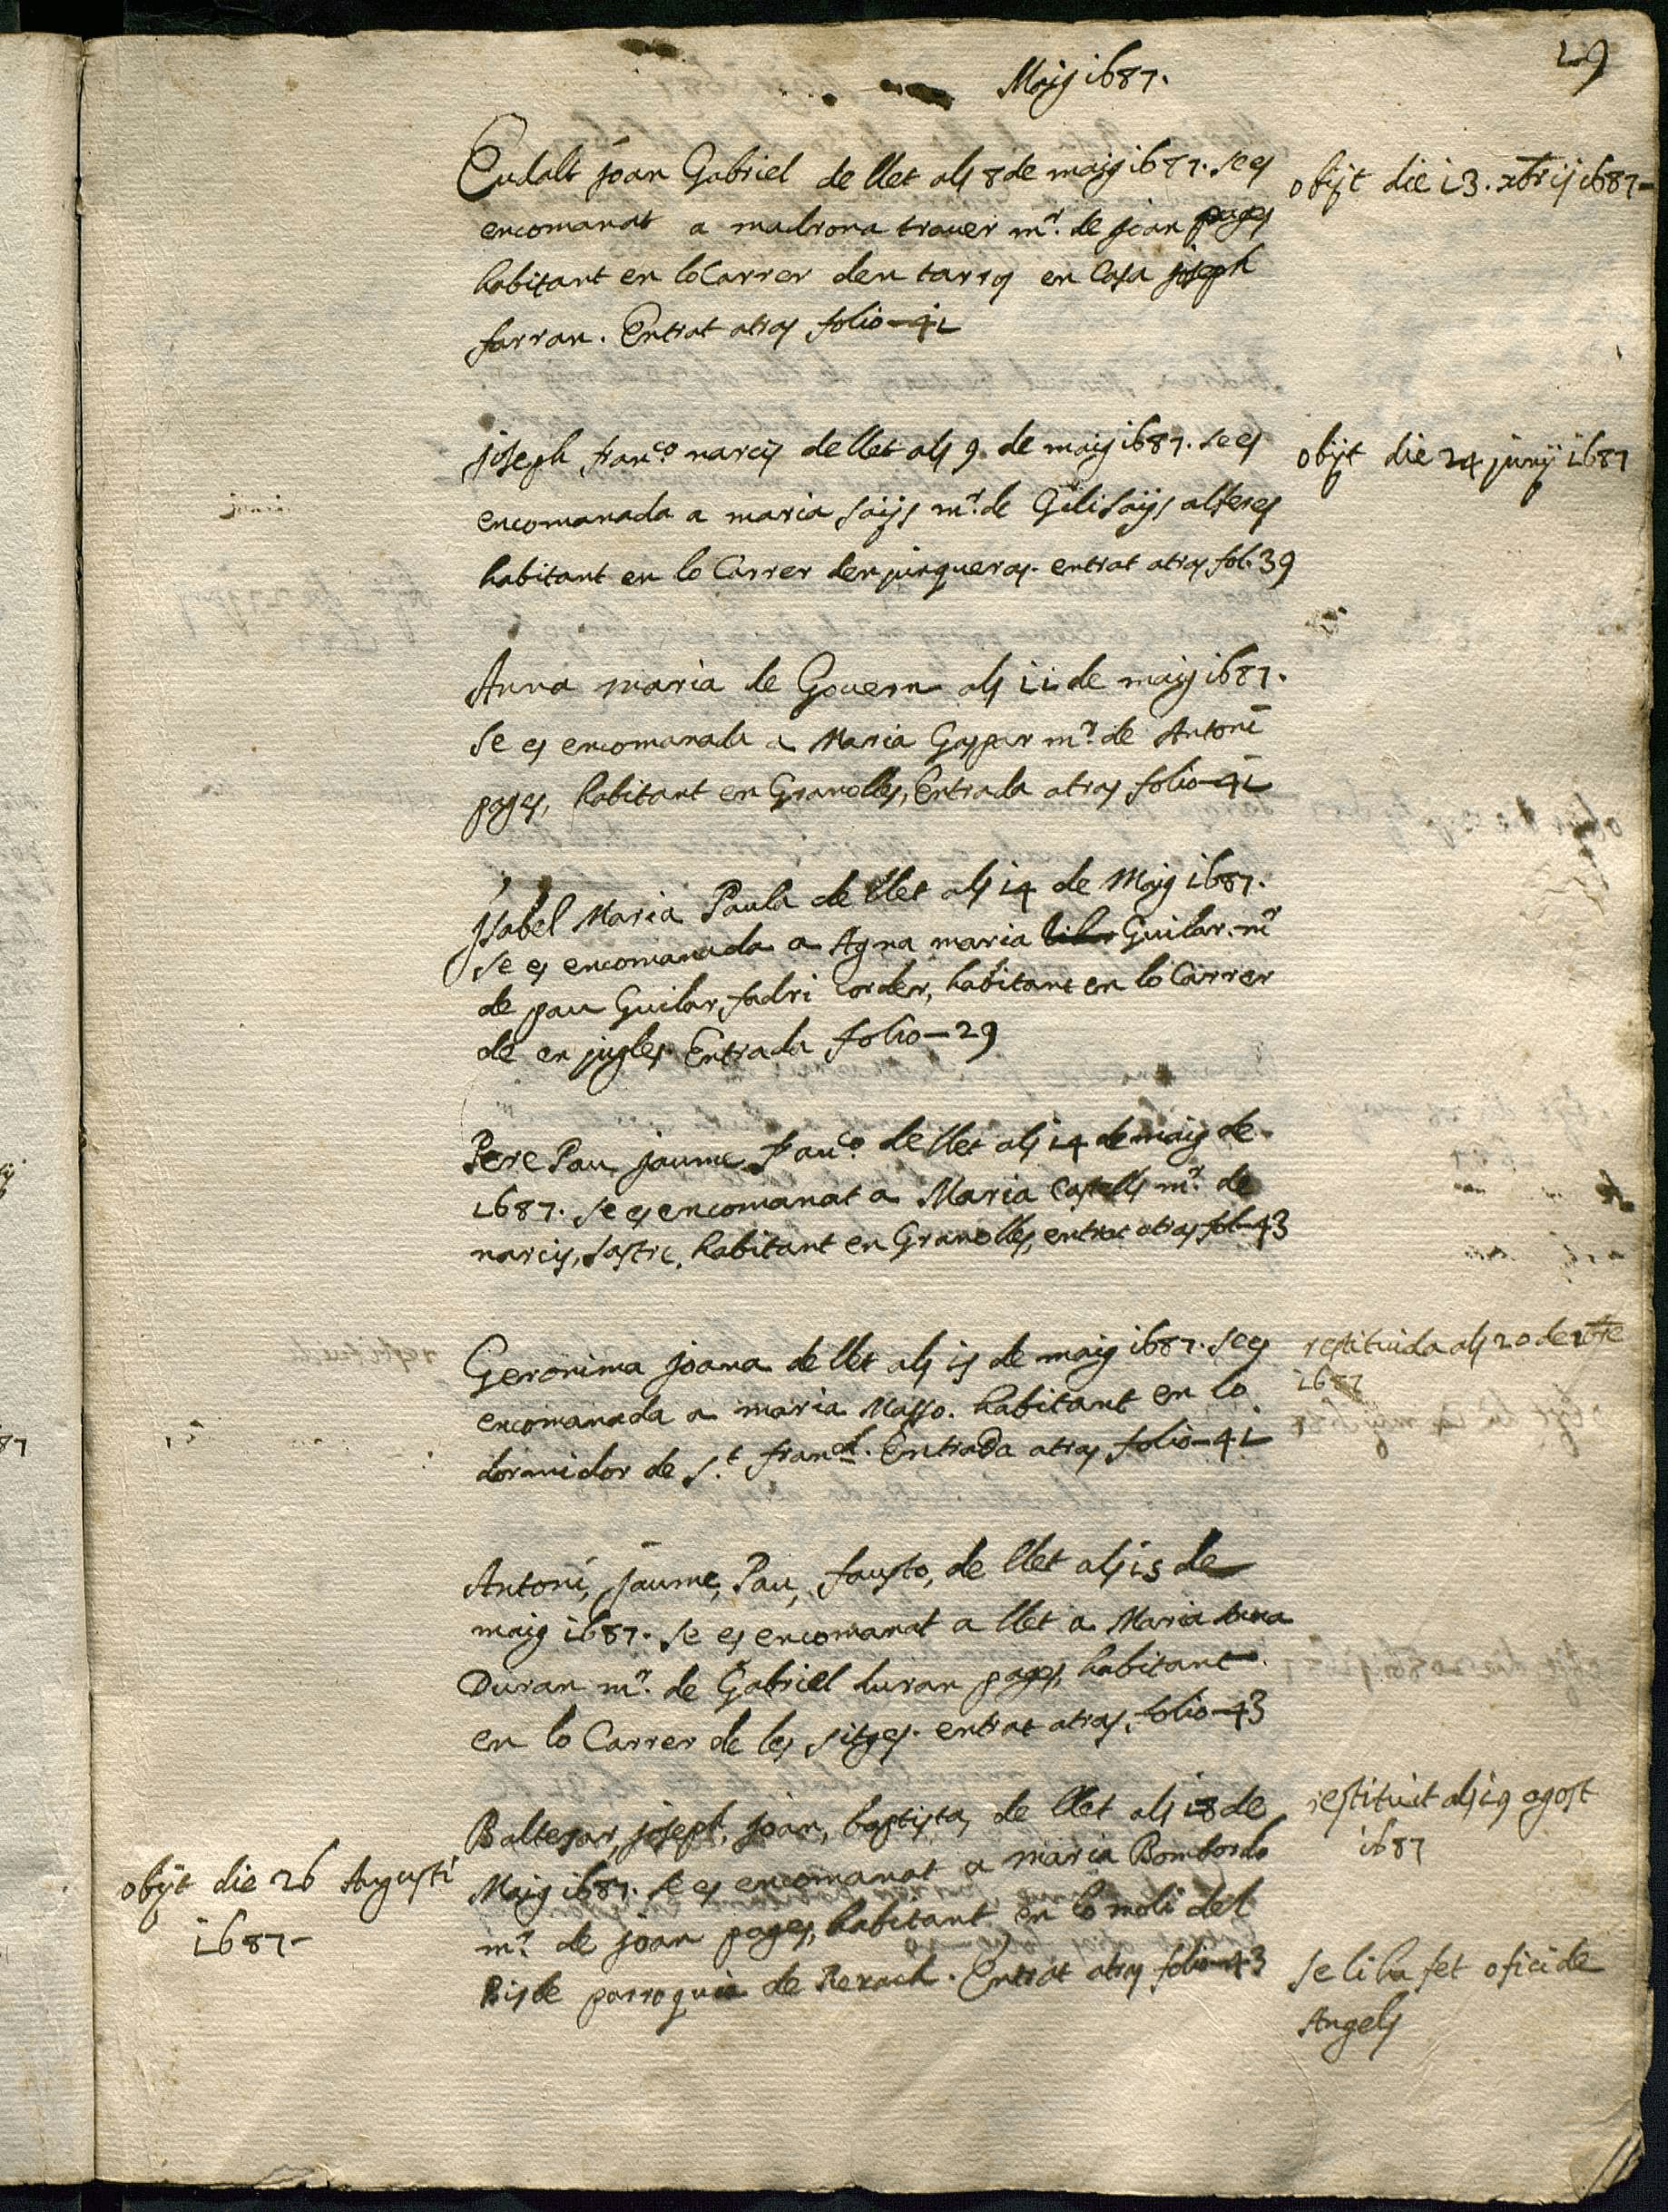 Maig 1687.
19
Eudalt joan Gabriel de llet als 8 de maig 1687. se es
encomanat a madrona trauer mr. de joan pages
habitant en lo Carrer den tarros en Casa joseph
farran. Entrat atras folio—41
obijt die 13. xbris 1687—
joseph franco. narcis de llet als 9. de maig 1687. se es
encomanada a maria saijs mr. de Gili saijs alferes
habitant en lo Carrer den junqueras. entrat atras fol. 39
obijt die 24 junij 1687
Anna maria de Gouern als 11 de maig 1687.
se es encomanada a Maria Gaspar mr. de Antoni
pages, habitant en Granolles, Entrada atras folio—41
Isabel Maria Paula de llet als 14 de Maig 1687.
se es encomanada a Agna maria Guilar mr
de pau Guilar, fadri Corder, habitant en lo Carrer
de en jugles. Entrada folio—29
Pere Pau, jaume, Franco. de llet als 14 de maig de
1687. se es encomanat a Maria Castells mr. de
narcis, sastre, habitant en Granolles, entrat atras fol—43
Geronima joana de llet als 15 de maig 1687. se es
encomanada a maria Masso. habitant en lo
dormidor de St. franch. Entrada atras folio—41
restituida als 20 de
1687
Antoni, jaume, Pau, fausto, de llet als 15 de
maig 1687. se es encomanat a llet a Maria Anna
Duran mr. de Gabriel duran pages, habitant
en lo Carrer de les sitges. entrat atras, folio—43
Baltesar, joseph, joan, baptista, de llet als 18 de
Maig 1687. se es encomanat a maria Bombardo
mr. de joan pages, habitant en lo moli del
Bisbe parroquia de Rexach. Entrat atras folio—43
restituit als 19 agost
1687
obijt die 26 Augusti
1687—
se li ha fet ofici de
Angels